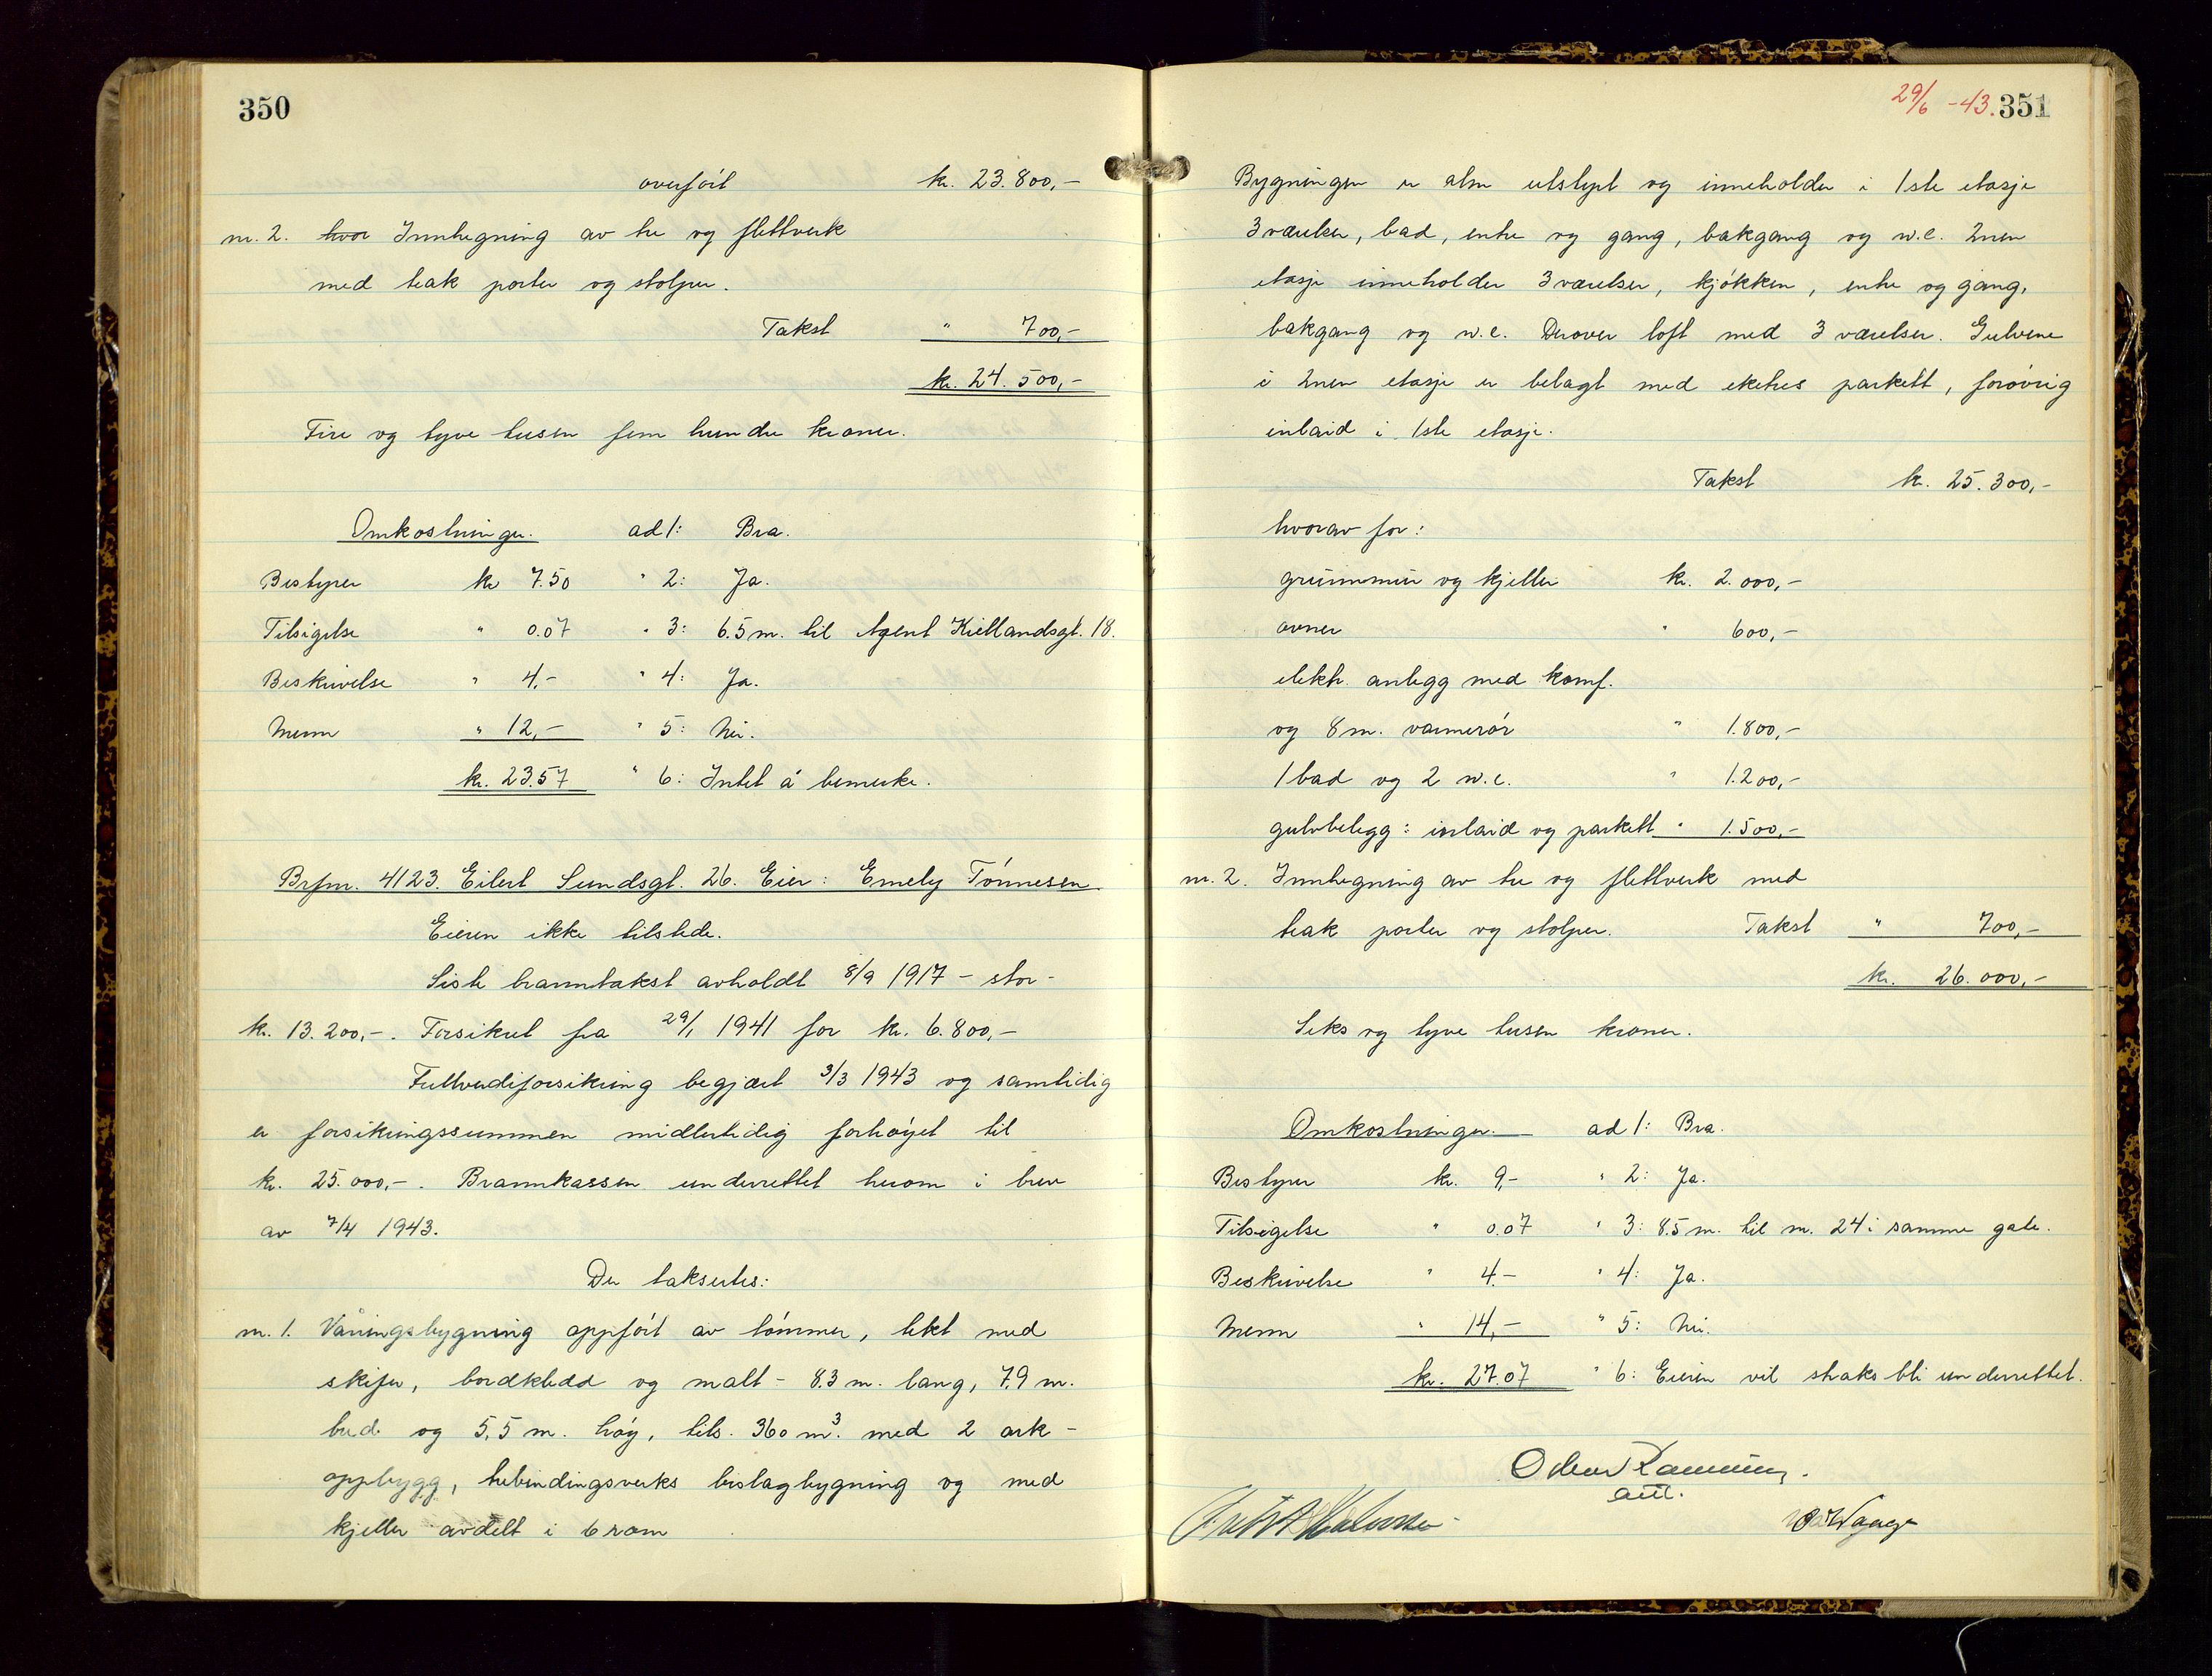 350
overført kr. 23.800,-
nr. 2. hvor Innhegning av tre og flettverk
med teak porter og stolper.
Takst " 700,-
kr. 24.500,-
Fire og tyve tusen fem hundre kroner.
Omkostninger. ad 1: Bra.
Bestyrer kr 7.50 " 2: Ja.
Tilsigelse " 0.07 " 3: 6.5 m. til Agent Kiellandsgt. 18.
Beskrivelse " 4,- " 4: Ja.
Menn " 12,- " 5: Nei.
kr. 23.57 " 6: Intet å bemerke.
Brfnr. 4123. Eilert Sundsgt. 26. Eier: Emely Tønnesen
Eieren ikke tilstede.
Siste branntakst avholdt 8/9 1917 - stor -
kr. 13.200,-. Forsikret fra 29/1 1941 for kr. 6.800,-
Fullverdiforsikring begjært 3/3 1943 og samtidig
er forsikringssummen midlertidig forhøyet til
kr. 25.000,-. Brannkassen underrettet herom i brev
av 7/4 1943.
Der takseres:
nr. 1. Våningsbygning oppført av tømmer, tekt med
skifer, bordkledd og malt - 8.3 m. lang, 7.9 m.
bred og 5,5 m. høy, tils. 360 m³. med 2 ark -
oppbygg, trebindingsverks bislagbygning og med
kjeller avdelt i 6 rom
29/6 -43. 351
Bygningen er alm utstyrt og inneholder i 1ste etasje
3 værelser, bad, entre og gang, bakgang og w.c. 2nen
etasje inneholder 3 værelser, kjøkken, entre og gang,
bakgang og w.c. Derover loft med 3 værelser. Gulvene
i 2nen etasje er belagt med eketres parkett, forøvrig
inlaid i 1ste etasje.
Takst kr. 25.300,-
hvorav for:
grunnmur og kjeller kr. 2.000,-
ovner " 600,-
elektr. anlegg med komf.
og 8 m. varmerør " 1.800,-
1 bad og 2 w.c. " 1.200,-
gulvbelegg: inlaid og parkett " 1.500,-
nr. 2. Innhegning av tre og flettverk med
teak porter og stolper. Takst " 700,-
kr. 26.000,-
Seks og tyve tusen kroner.
Omkostninger. ad 1: Bra.
Bestyrer kr. 9,- " 2: Ja.
Tilsigelse " 0.07 " 3: 8.5 m. til nr. 24 i samme gate.
Beskrivelse " 4.- " 4: Ja.
Menn " 14,- " 5: Nei.
kr. 27.07 " 6: Eieren vil straks bli underrettet.